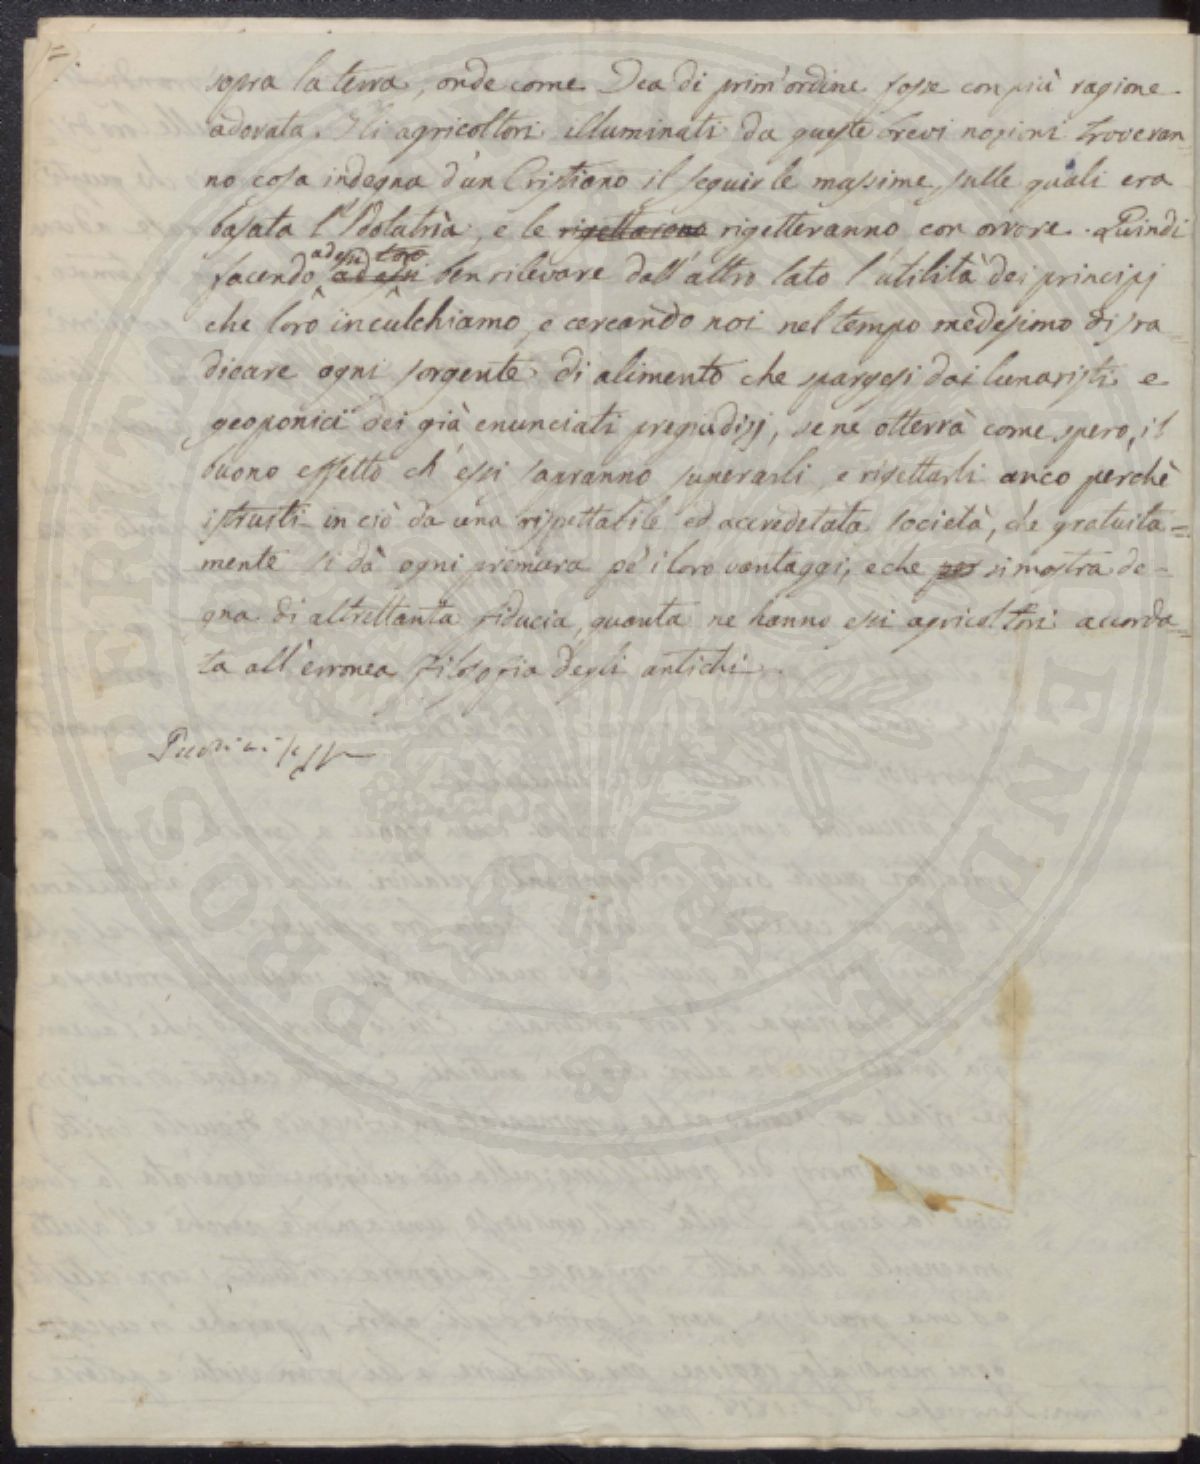 sopra la terra, onde come Dea di prim'ordine fosse con più ragione
adorata. Gli agricoltori illuminati da queste brevi nozioni troveran=
no cosa indegna d'un Cristiano il seguir le massime, sulle quali era
basata l'Idolatrìa, e le rigettarono rigetteranno con orrore. Quindi
facendo ad essi loro ad essi ben rilevare dall'altro lato l'utilità dei principj
che loro inculchiamo, e cercando noi nel tempo medesimo di sra=
dicare ogni sorgente di alimento che spargesi dai lunaristi e
geoponici dei già enunciati pregiudizj, se ne otterrà come spero, il
buono effetto ch'essi sapranno superarli, e rigettarli anco perchè
istrutti in ciò da una rispettabile ed accredetata società, che gratuita=
mente si dà ogni premura pe' i loro vantaggi, e che per si mostra de=
gna di altrettanta fiducia, quanta ne hanno essi agricoltori accorda=
ta all'erronea filosofia degli antichi.
PROSPERITATI AUGENDAE